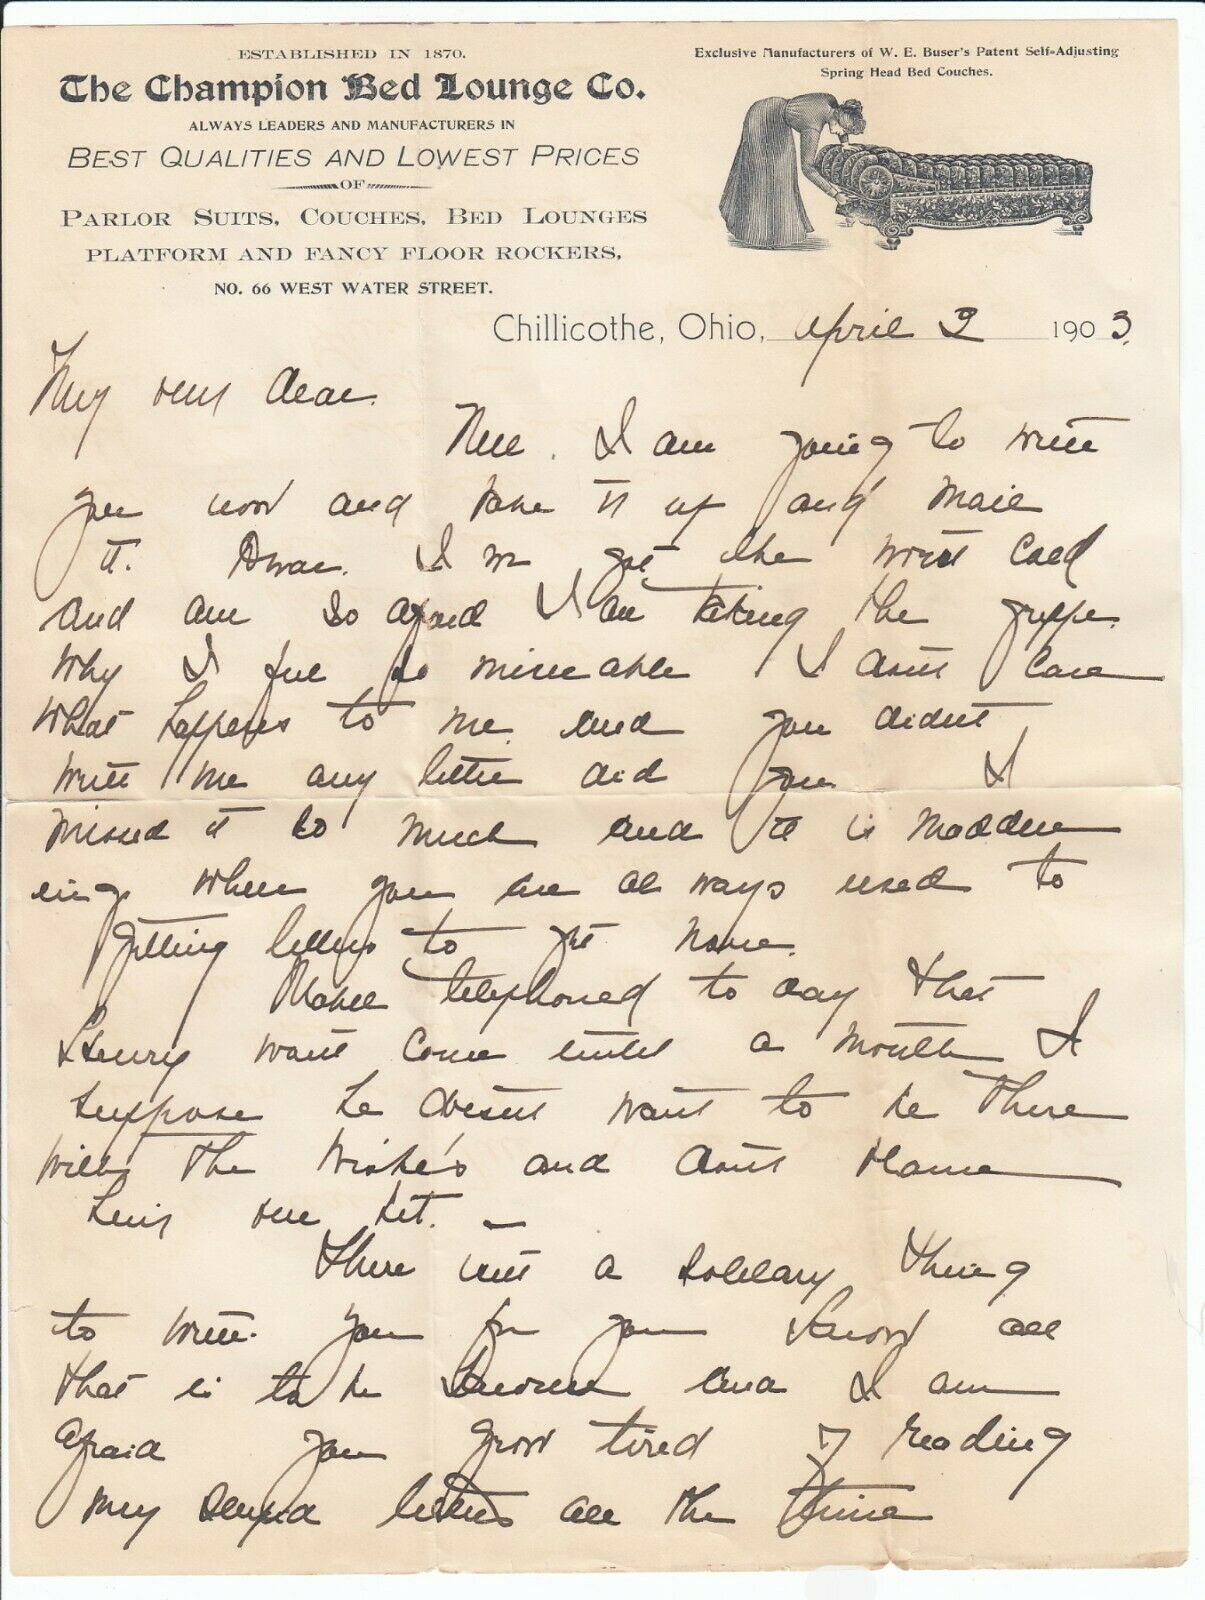 ESTABLISHED IN 1870.
The Champion Bed Lounge Co.
ALWAYS LEADERS AND MANUFACTURERS IN
BEST QUALITIES AND LOWEST PRICES
OF
PARLOR SUITS, COUCHES, BED LOUNGES
PLATFORM AND FANCY FLOOR ROCKERS,
NO. 66 WEST WATER STREET.
Exclusive Manufacturers of W. E. Buser's Patent Self-Adjusting
Spring Head Bed Couches.
Chillicothe, Ohio, April 2 1903.
My very dear.
Well. I am going to write
you now and take it up and mail
it. Dear. I've got the worst cold
and am so afraid I am taking the grippe.
Why I feel so miserable I don't care
what happens to me. and you didnt
write me any letter did you I
missed it so much and it is madden
ing when you are always used to
getting letters to get none.
Mabel telephoned to day that
Henry wont come until a month I
suppose he doesnt want to be there
with the and dont blame
him one bit. —
There isnt a solitary thing
to write you for you know all
that is to be known and I am
afraid you grow tired of reading
my stupid letters all the time